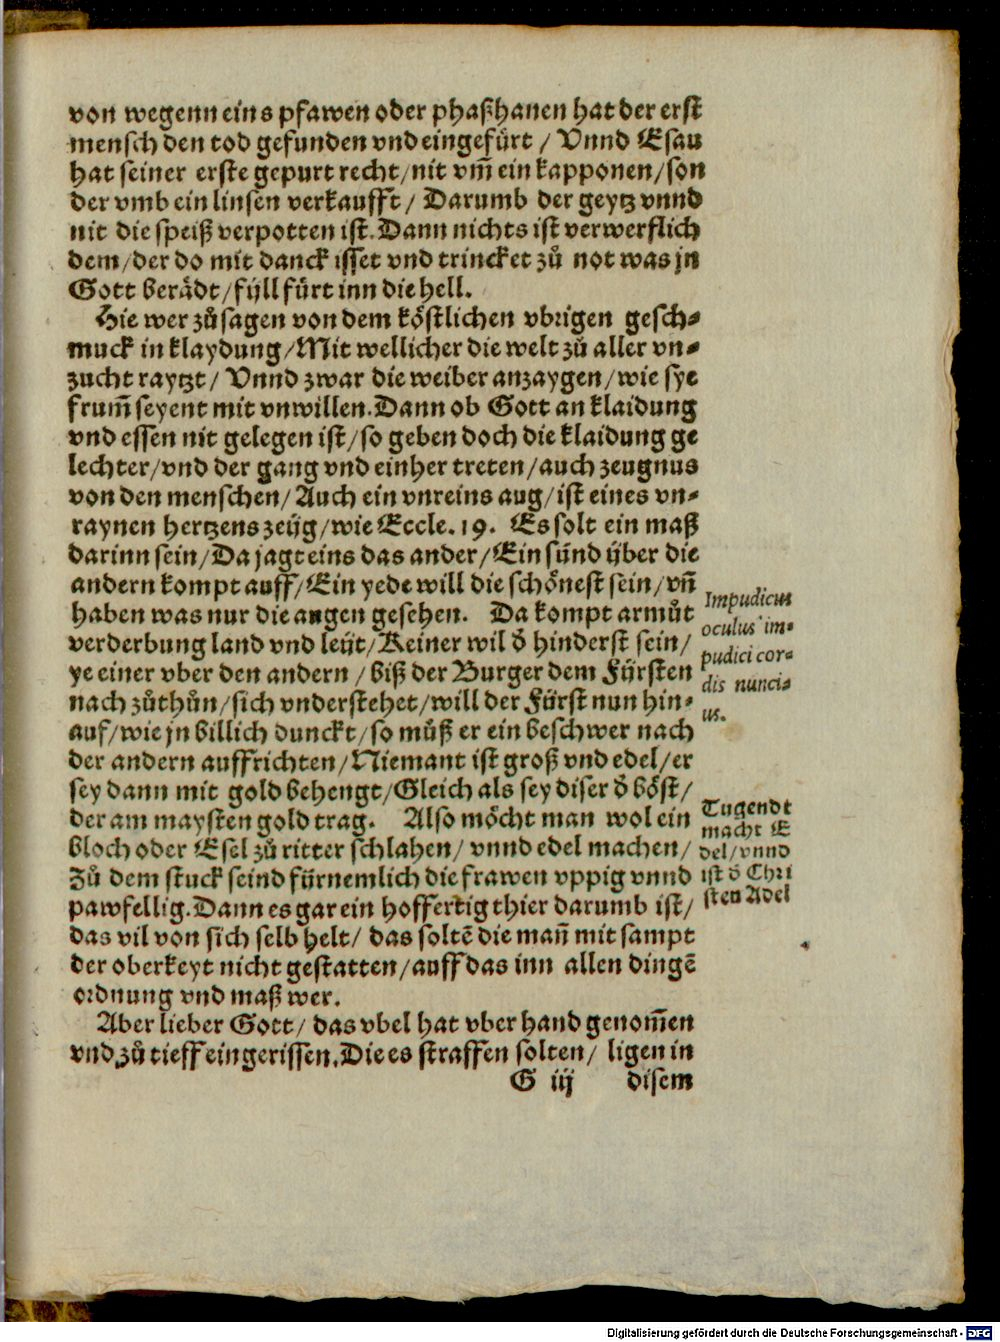 von wegenn eins pfawen oder phaßhanen hat der erst
mensch den tod gefunden vnd eingefürt / Vnnd Esau
hat seiner erste gepurt recht/nit vm̃ ein kapponen/son
der vmb ein linsen verkaufft / Darumb der geytz vnnd
nit die speiß verpotten ist. Dann nichts ist verwerflich
dem/der do mit danck isset vnd trincket zů not was jn
Gott berädt/füll fürt inn die hell.
Hie wer zů sagen von dem köstlichen vbrigen gesch⸗
muck in klaydung/Mit wellicher die welt zů aller vn⸗
zucht raytzt / Vnnd zwar die weiber anzaygen/wie sye
frum̃ seyent mit vnwillen. Dann ob Gott an klaidung
vnd essen nit gelegen ist/so geben doch die klaidung ge
lechter/vnd der gang vnd einher treten/auch zeugnus
von den menschen/ Auch ein vnreins aug/ist eines vn⸗
raynen hertzens zeüg/wie Eccle. 19. Es solt ein maß
darinn sein/Da jagt eins das ander/Ein sünd über die
andern kompt auff/Ein yede will die schönest sein/vñ
haben was nur die augen gesehen. Da kompt armůt
verderbung land vnd leüt/Keiner wil ď hinderst sein/
ye einer vber den andern / biß der Burger dem Fürsten
nach zůthůn/sich vnderstehet/will der Fürst nun hin⸗
auf/wie jn billich dunckt/so můß er ein beschwer nach
der andern auffrichten/Niemant ist groß vnd edel/er
sey dann mit gold behengt/Gleich als sey diser ď böst/
der am maysten gold trag. Also möcht man wol ein
bloch oder Esel zů ritter schlahen/ vnnd edel machen/
Zů dem stuck seind fürnemlich die frawen vppig vnnd
pawfellig. Dann es gar ein hoffertig thier darumb ist/
das vil von sich selb helt/ das soltẽ die mañ mit sampt
der oberkeyt nicht gestatten/auff das inn allen dingẽ
ordnung vnd maß wer.
Aber lieber Gott/ das vbel hat vber hand genom̃en
vnd zů tieff eingerissen. Die es straffen solten/ ligen in
G iij disem
Impudicus
oculus im⸗
pudici cor⸗
dis nunci⸗
us.
Tugendt
macht E
del/vnnd
ist ď Chri
sten Adel
Digitalisierung gefördert durch die Deutsche Forschungsgemeinschaft - DFG